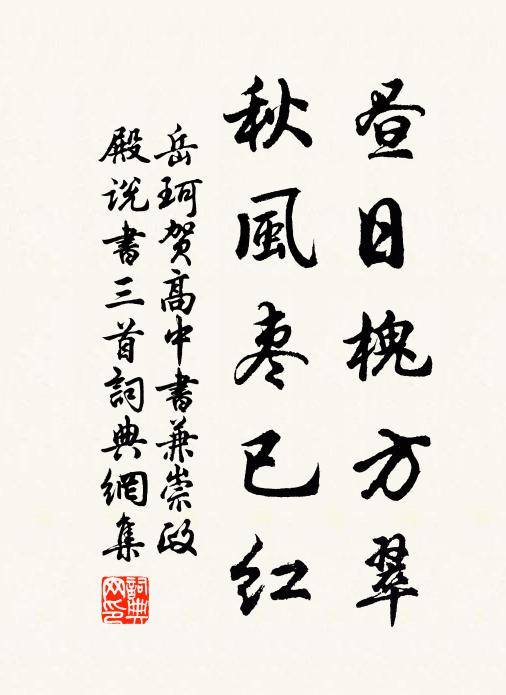 昼日槐方翠
秋風枣已红
岳珂贺高中書兼崇政
殿说書三首詞典網集
詞典网印